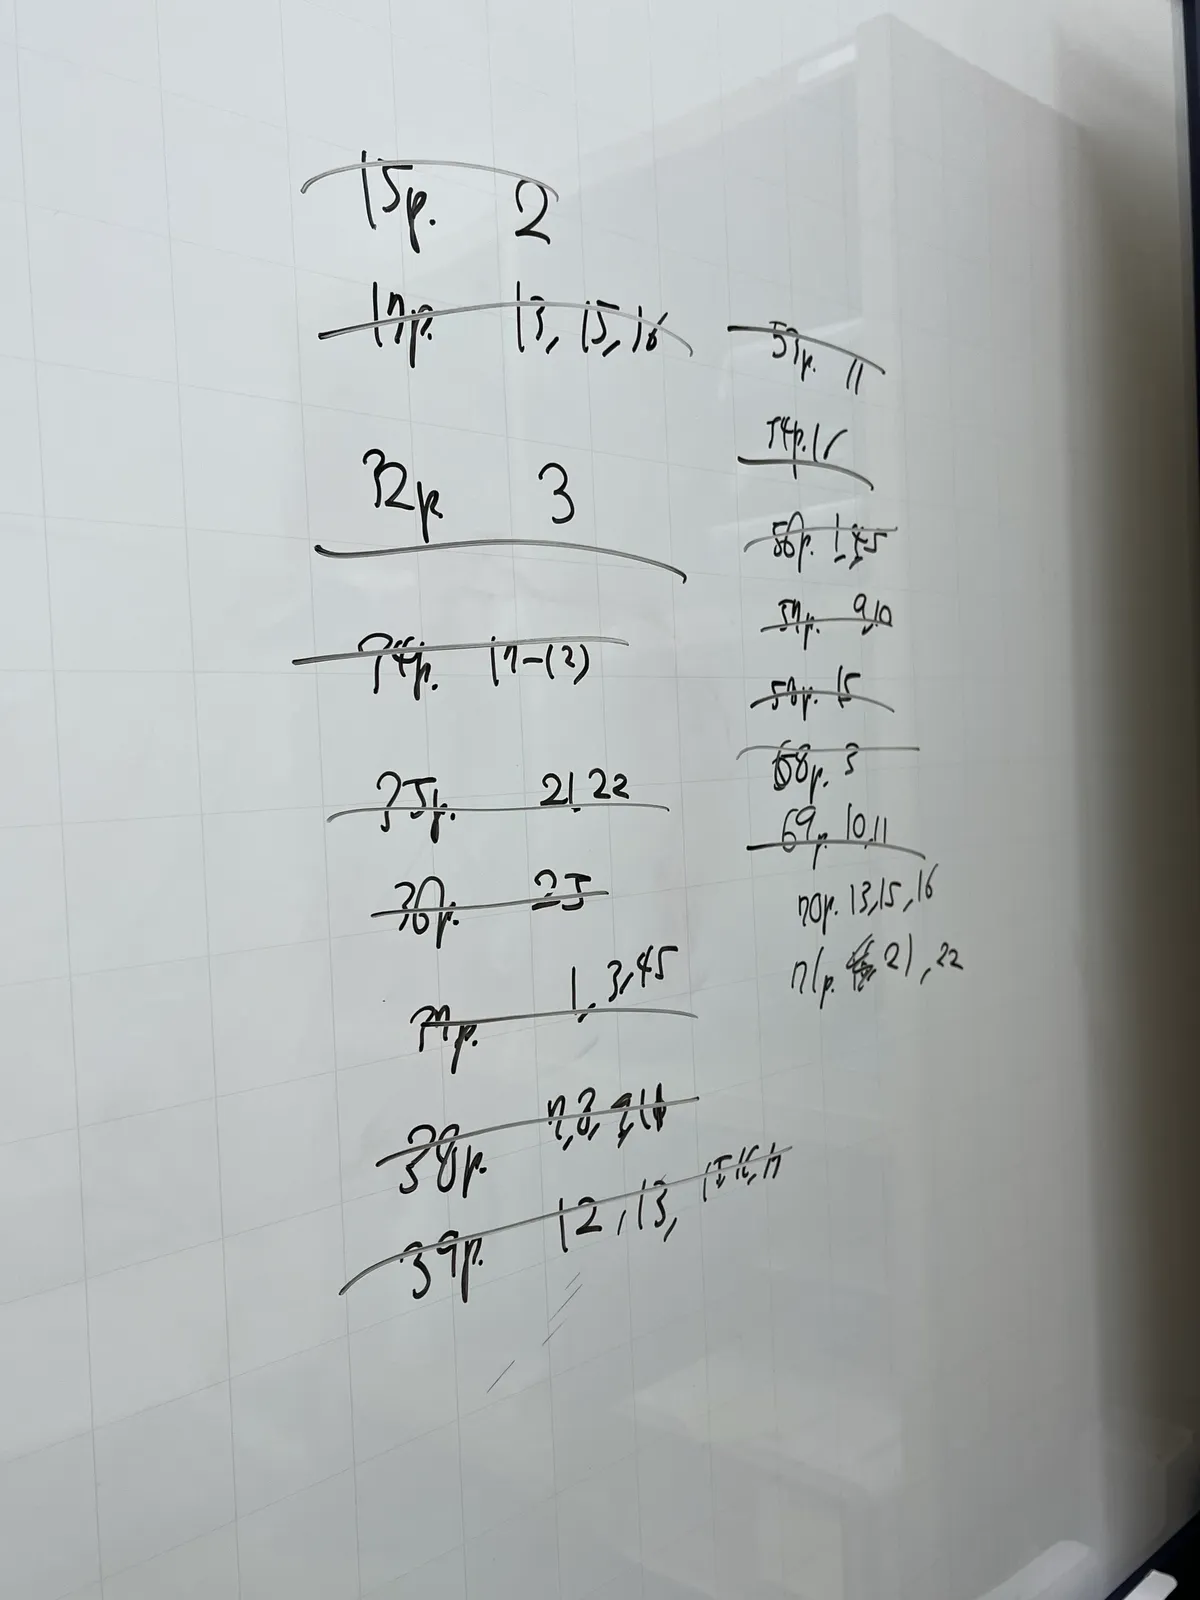 15p. 2
17p. 13, 15, 16
32p 3
34p. 17-(2)
35p. 21, 22
36p. 25
37p. 1, 3, 4 5
38p. 7, 8, 9, 11
39p. 12, 13, 15, 16, 17
53p. 11
54p. 15
56p. 1, 4, 5
57p. 9, 10
58p. 15
68p. 3
69p. 10, 11
70p. 13, 15, 16
71p. 21, 22